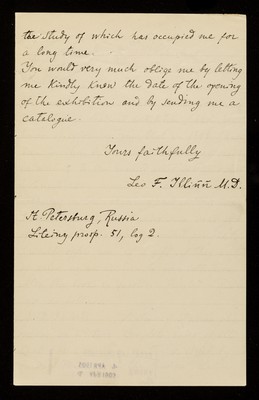 the study of which has occupied me for
a long time.
You would very much oblige me by letting
me Kindly know the date of the opening
of the exhibition and by sending me a
catalogue.
Yours faithfully
Leo F. Illiññ M.D.
St Petersburg, Russia
Liteiny prosp. 51, log 2.